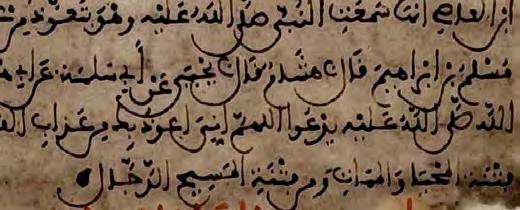 ابن العاصي انها سمعت النبي صلى الله عليه وهو يتعوذ من
مسلم بن ابراهيم قال هشام قال يحيى عن أبي سلمة عن ابي
الله صلى الله عليه يدعوا اللهم إني اعوذ بك من عذاب
فتنة المحيا والممات ومن فتنة المسيح الدجال